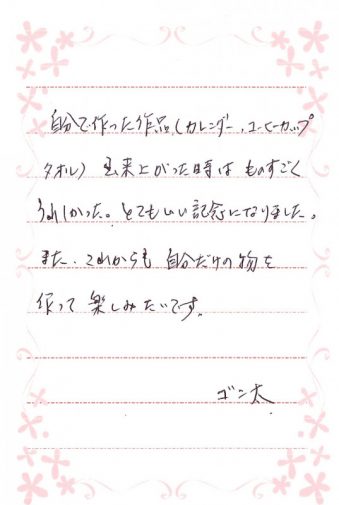 自分で作った作品(カレンダー、コーヒーカップ
タオル) 出来上がった時は ものすごく
うれしかった。とてもいい記念になりました。
また、これからも 自分だけの物を
作って 楽しみたいです。
ゴン太